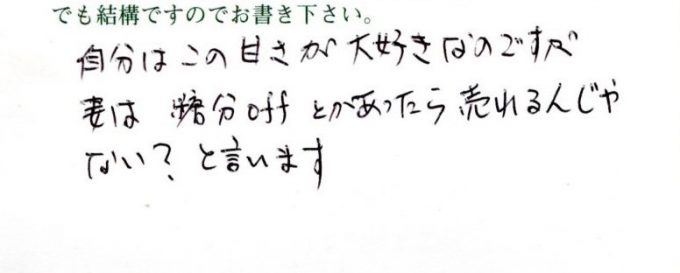 でも結構ですのでお書き下さい。
自分はこの甘さが大好きなのですが
妻は 糖分off とかあったら売れるんじゃ
ない？と言います